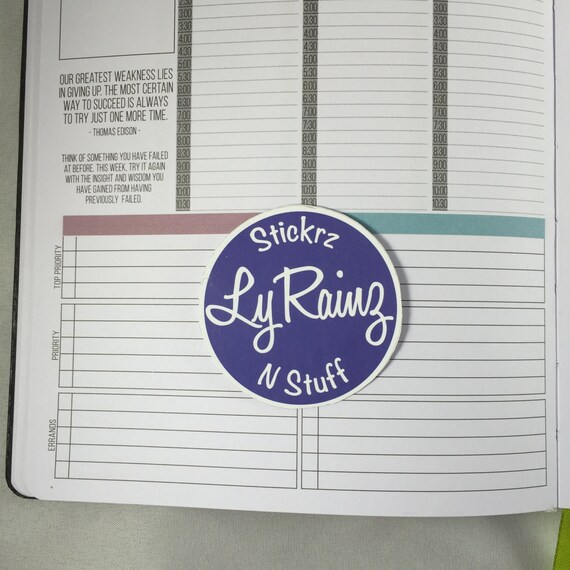 3:00
3:30
4:00
4:30
5:00
5:30
6:00
6:30
7:00
7:30
8:00
8:30
9:00
9:30
10:00
10:30
3:00
3:30
4:00
4:30
5:00
5:30
6:00
6:30
7:00
7:30
8:00
8:30
9:00
9:30
10:00
10:30
3:00
3:30
4:00
4:30
5:00
5:30
6:00
6:30
7:00
7:30
8:00
8:30
9:00
9:30
10:00
10:30
OUR GREATEST WEAKNESS LIES
IN GIVING UP. THE MOST CERTAIN
WAY TO SUCCEED IS ALWAYS
TO TRY JUST ONE MORE TIME.
- THOMAS EDISON -
THINK OF SOMETHING YOU HAVE FAILED
AT BEFORE. THIS WEEK, TRY IT AGAIN
WITH THE INSIGHT AND WISDOM YOU
HAVE GAINED FROM HAVING
PREVIOUSLY FAILED.
TOP PRIORITY
PRIORITY
ERRANDS
Stickrz
LyRainz
N Stuff